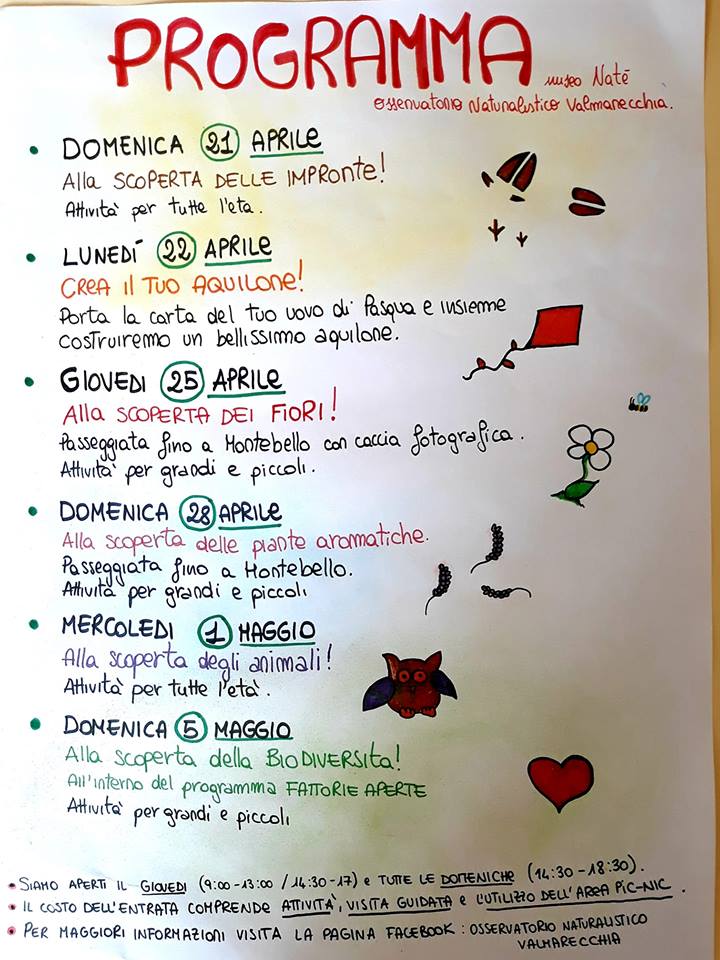 PROGRAMMA
museo Natè
Osservatorio Naturalistico Valmarecchia.
• DOMENICA 21 APRILE
Alla SCOPERTA DELLE IMPRONTE!
Attività per tutte l'età.
• LUNEDÍ 22 APRILE
CREA il TUO AQUILONE!
Porta la carta del tuo uovo di Pasqua e insieme
costruiremo un bellissimo aquilone.
• GIOVEDI 25 APRILE
Alla SCOPERTA DEI FIORI!
Passeggiata fino a Montebello con caccia fotografica.
Attività per grandi e piccoli.
• DOMENICA 28 APRILE
Alla scoperta delle piante aromatiche.
Passeggiata fino a Montebello.
Attività per grandi e piccoli
• MERCOLEDI 1 MAGGIO
Alla scoperta degli animali!
Attività per tutte l'età.
• DOMENICA 5 MAGGIO
Alla scoperta della BIODIVERSITà!
All'interno del programma FATTORIE APERTE
Attività per grandi e piccoli
• SIAMO APERTI IL GIOVEDI (9:00-13:00 / 14:30-17) e TUTTE LE DOMENICHE (14:30-18:30).
• IL COSTO DELL'ENTRATA COMPRENDE ATTIVITA', VISITA GUIDATA e L'UTILIZZO DELL'AREA PIC-NIC.
• PER MAGGIORI INFORMAZIONI VISITA LA PAGINA FACEBOOK: OSSERVATORIO NATURALISTICO
VALMARECCHIA